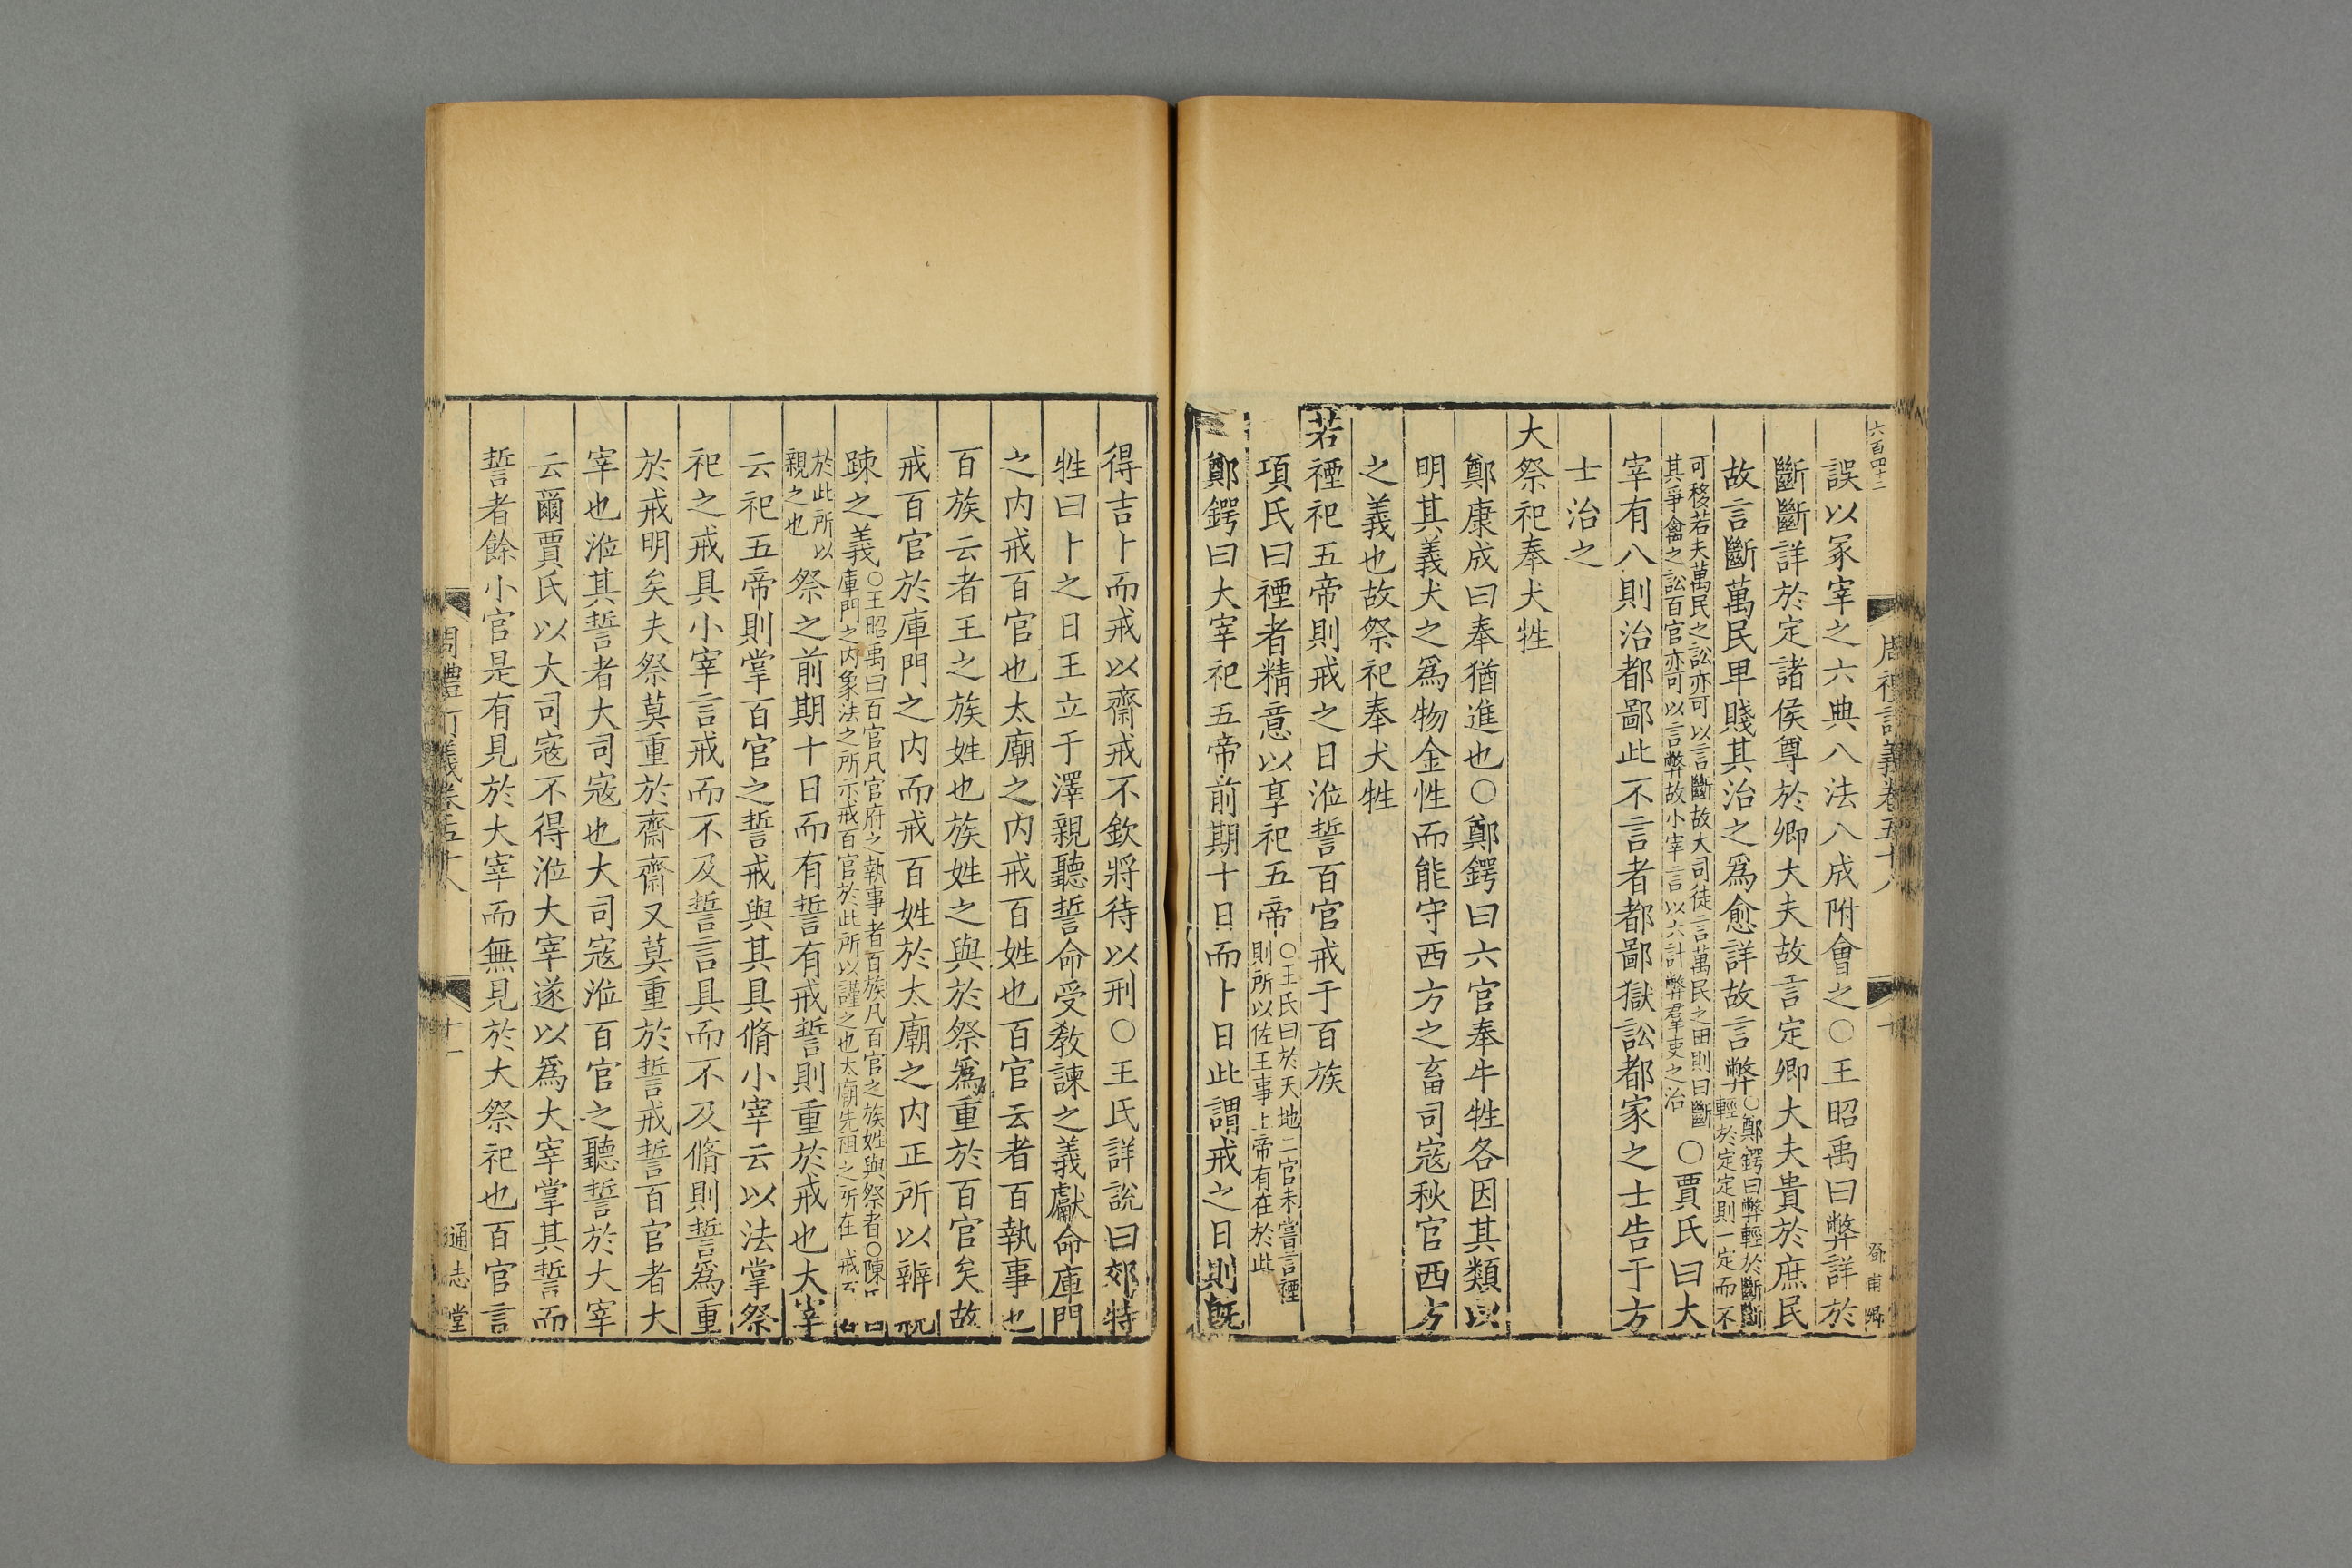 六百四十二
周禮訂義卷五十八
十
鄧甫卿
誤以冢宰之六典八法八成附會之○王昭禹曰弊詳於
斷斷詳於定諸侯尊於卿大夫故言定卿大夫貴於庶民
故言斷萬民卑賤其治之爲愈詳故言弊○鄭鍔曰弊輕於斷斷
輕於定定則一定而不
可移若夫萬民之訟亦可以言斷故大司徒言萬民之田則曰斷
其爭禽之訟百官亦可以言弊故小宰言以六計弊羣吏之治
○賈氏曰大
宰有八則治都鄙此不言者都鄙獄訟都家之士告于方
士治之
大祭祀奉犬牲
鄭康成曰奉猶進也○鄭鍔曰六官奉牛牲各因其類以
明其義犬之爲物金性而能守西方之畜司寇秋官西方
之義也故祭祀奉犬牲
若禋祀五帝則戒之日涖誓百官戒于百族
項氏曰禋者精意以享祀五帝○王氏曰於天地二官未嘗言禋
則所以佐王事上帝有在於此
鄭鍔曰大宰祀五帝前期十日而卜日此謂戒之日則旣
得吉卜而戒以齋戒不欽將待以刑○王氏詳說曰郊特
牲曰卜之日王立于澤親聽誓命受敎諫之義獻命庫門
之内戒百官也太廟之内戒百姓也百官云者百執事也
百族云者王之族姓也族姓之與於祭爲重於百官矣故
戒百官於庫門之内而戒百姓於太廟之内正所以辨親
踈之義○王昭禹曰百官凡官府之執事者百族凡百官之族姓與祭者○陳氏曰
庫門之内象法之所示戒百官於此所以謹之也太廟先祖之所在戒百
於此所以
親之也
祭之前期十日而有誓有戒誓則重於戒也大宰
云祀五帝則掌百官之誓戒與其具脩小宰云以法掌祭
祀之戒具小宰言戒而不及誓言具而不及脩則誓爲重
於戒明矣夫祭莫重於齋齋又莫重於誓戒誓百官者大
宰也涖其誓者大司寇也大司寇涖百官之聽誓於大宰
云爾賈氏以大司寇不得涖大宰遂以爲大宰掌其誓而
誓者餘小官是有見於大宰而無見於大祭祀也百官言
周禮訂義卷五十八
十一
通志堂